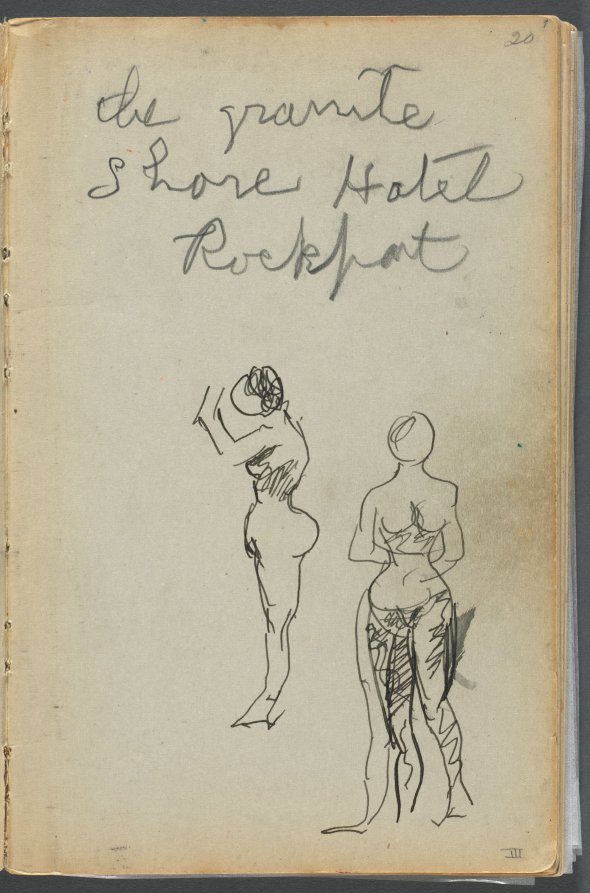 20
the granite
Shore Hotel
Rockport
III